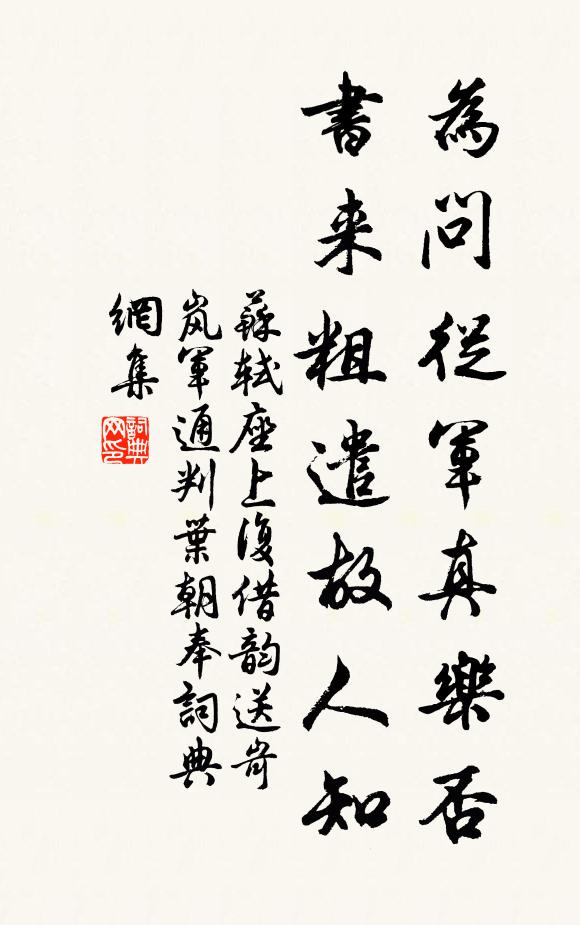 為問從軍真樂否
書来粗遣故人知
蘇軾座上復借韵送岢
嵐軍通判葉朝奉詞典
網集
詞典
网印